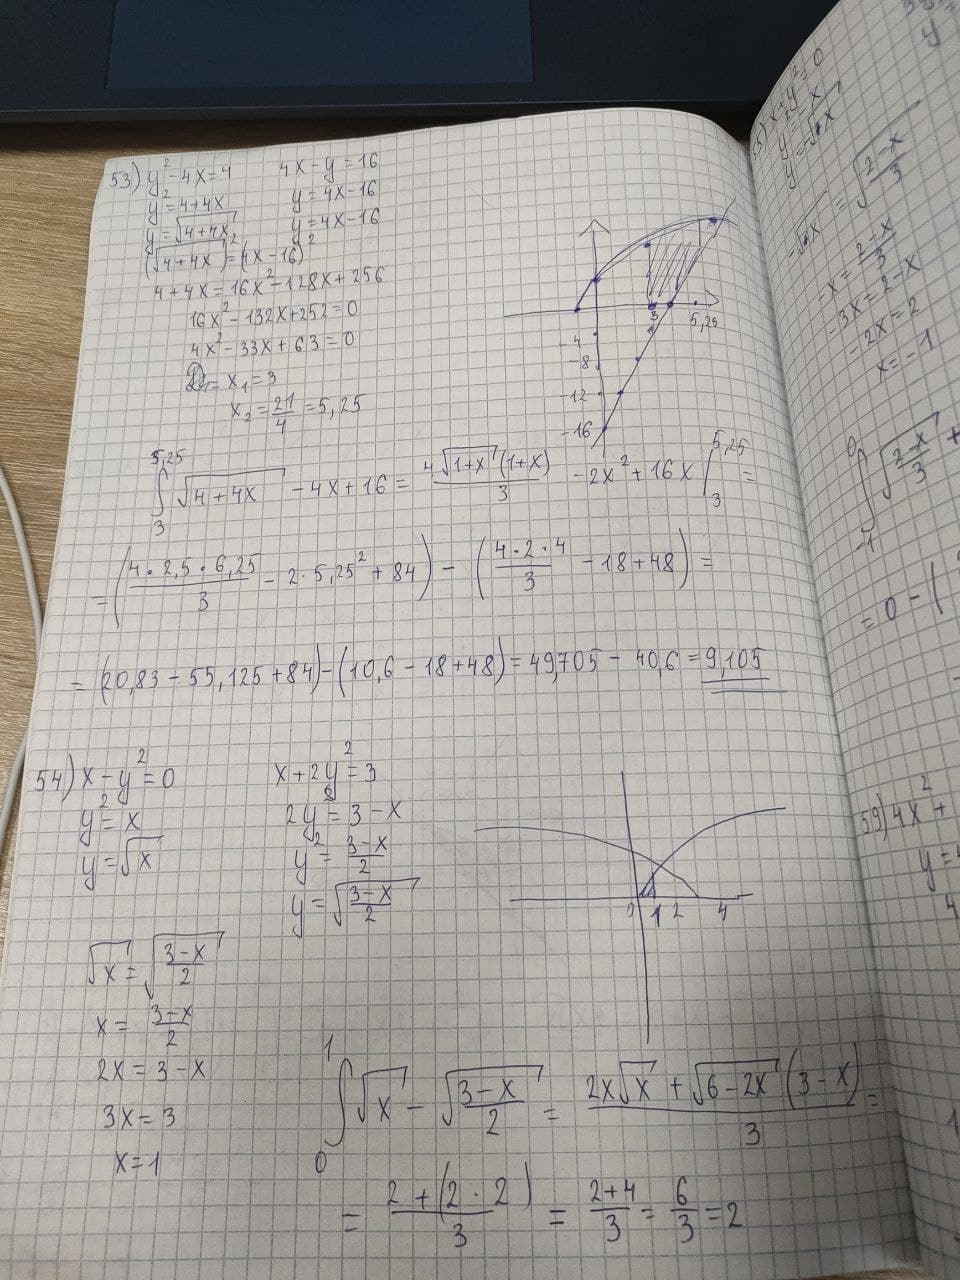 53) y² - 4x = 4    4x - y = 16
y² = 4 + 4x    y = 4x - 16
y = √(4 + 4x)    y = 4x - 16
(√(4 + 4x))² = (4x - 16)²
4 + 4x = 16x² - 128x + 256
16x² - 132x + 252 = 0
4x² - 33x + 63 = 0
x₁ = 3
x₂ = 21/4 = 5,25
3 5,25
-4
-8
-12
-16
∫₃^5,25 √(4 + 4x) - 4x + 16 = 4√(1+x) (1+x)/3 - 2x² + 16x ∫₃^5,25 =
= (4 · 2,5 · 6,25/3 - 2 · 5,25² + 84) - (4 · 2 · 4/3 - 18 + 48) =
= (20,83 - 55,125 + 84) - (10,6 - 18 + 48) = 49,705 - 40,6 = 9,105
54) x - y² = 0    x + 2y² = 3
y² = x    2y² = 3 - x
y = √x    y² = (3-x)/2
y = √((3-x)/2)
0 1 2 4
√x = √((3-x)/2)
x = (3-x)/2
2x = 3 - x
3x = 3
x = 1
∫₀¹ √x - √((3-x)/2) = (2x√x + √(6-2x) (3-x))/3 =
= (2 + (2 · 2))/3 = (2+4)/3 = 6/3 = 2
5) x + y² = 0
y² = -x
√((2-x)/3)
-x = (2-x)/3
-3x = 2 - x
-2x = 2
x = -1
∫₋₁⁰ √((2-x)/3) +
= 0 - (
59) 4x² +
y =
4